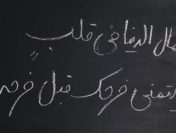 مال الدنيا في قلبٍ
يتمنى فرحك قبل فرحه